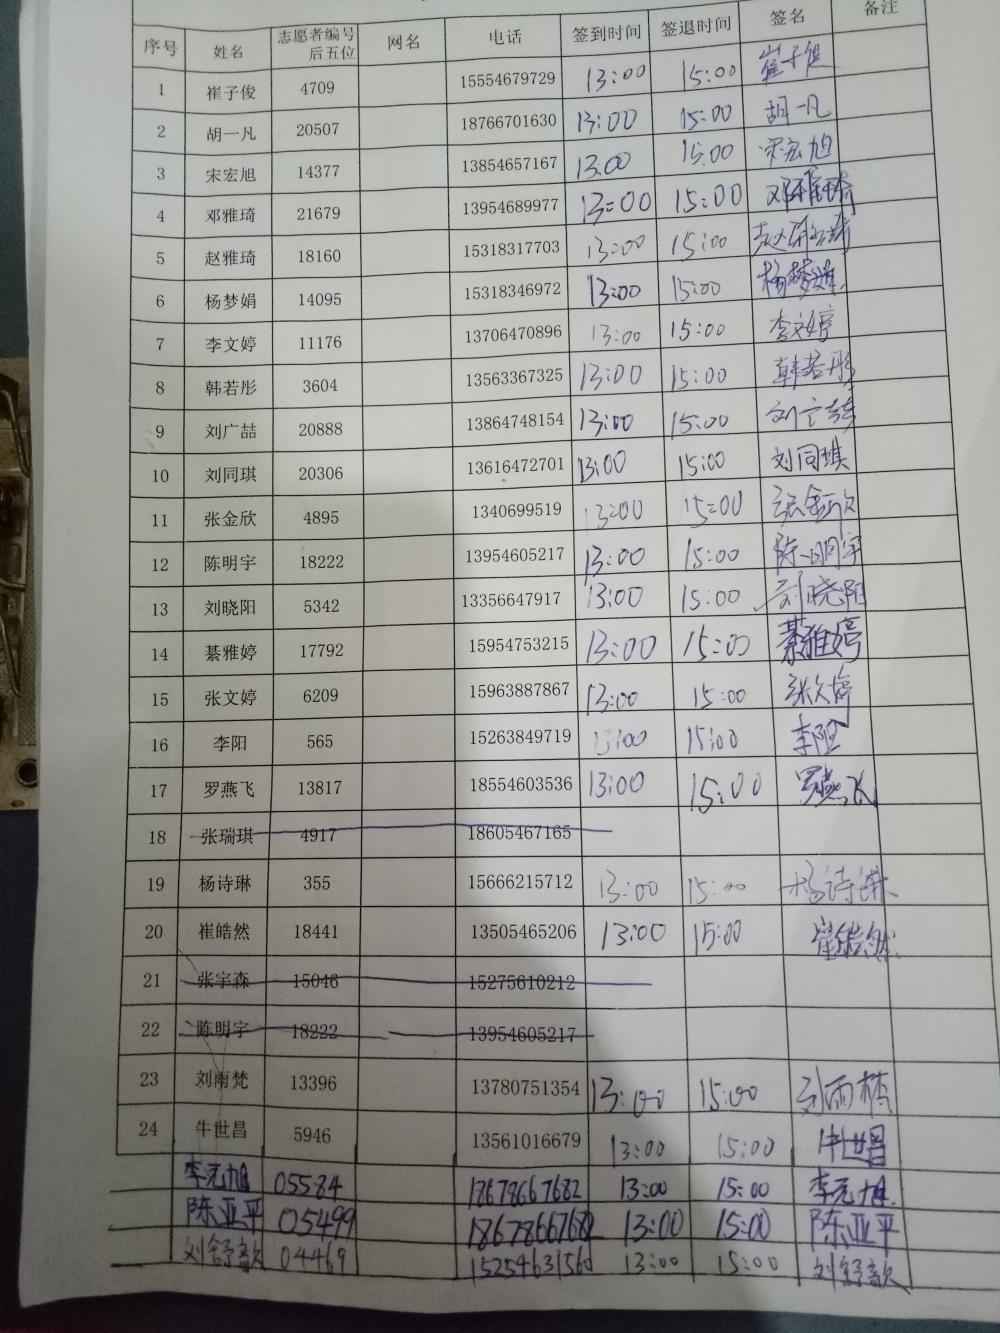 序号 姓名 志愿者编号后五位 网名 电话 签到时间 签退时间 签名 备注
1 崔子俊 4709 15554679729 13:00 15:00 崔子俊
2 胡一凡 20507 18766701630 13:00 15:00 胡一凡
3 宋宏旭 14377 13854657167 13:00 15:00 宋宏旭
4 邓雅琦 21679 13954689977 13:00 15:00 邓雅琦
5 赵雅琦 18160 15318317703 13:00 15:00 赵雅琦
6 杨梦娟 14095 15318346972 13:00 15:00 杨梦娟
7 李文婷 11176 13706470896 13:00 15:00 李文婷
8 韩若彤 3604 13563367325 13:00 15:00 韩若彤
9 刘广喆 20888 13864748154 13:00 15:00 刘广喆
10 刘同琪 20306 13616472701 13:00 15:00 刘同琪
11 张金欣 4895 1340699519 13:00 15:00 张金欣
12 陈明宇 18222 13954605217 13:00 15:00 陈明宇
13 刘晓阳 5342 13356647917 13:00 15:00 刘晓阳
14 綦雅婷 17792 15954753215 13:00 15:00 綦雅婷
15 张文婷 6209 15963887867 13:00 15:00 张文婷
16 李阳 565 15263849719 13:00 15:00 李阳
17 罗燕飞 13817 18554603536 13:00 15:00 罗燕飞
18 张瑞琪 4917 18605467165
19 杨诗琳 355 15666215712 13:00 15:00 杨诗琳
20 崔皓然 18441 13505465206 13:00 15:00 崔皓然
21 张宇森 15046 15275610212
22 陈明宇 18222 13954605217
23 刘雨梵 13396 13780751354 13:00 15:00 刘雨梵
24 牛世昌 5946 13561016679 13:00 15:00 牛世昌
李元旭 05584 18678667682 13:00 15:00 李元旭
陈亚平 05499 18678667682 13:00 15:00 陈亚平
刘舒歆 04469 15254631560 13:00 15:00 刘舒歆